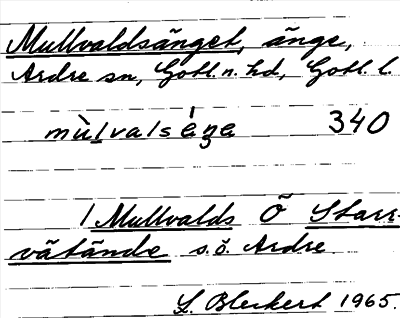 Mullvaldsänget, änge,
Ardre sn, Gotl. n. hd, Gotl. l.
mùlvalséŋe 340
1 Mullvalds Ö Starr-
vätände s.ö. Ardre
L. Bleckert 1965.